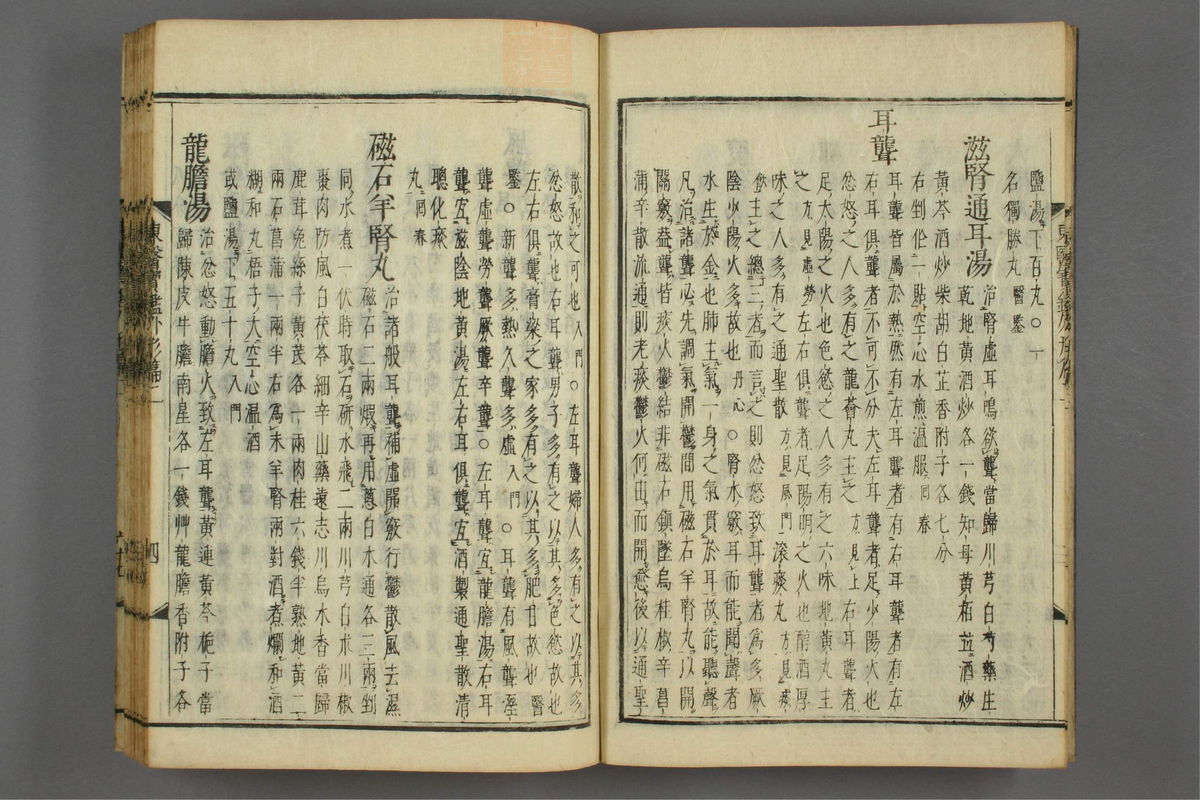 鹽湯下百丸○一
名獨勝丸 醫鑒
滋腎通耳湯 治腎虛耳鳴欲聾當歸川芎白芍藥生
乾地黃酒炒各一錢知母黃栢並酒炒
黃芩酒炒柴胡白芷香附子各七分
右剉作一貼空心水煎溫服 回春
耳聾
耳聾皆屬於熱然有左耳聾者有右耳聾者有左
右耳俱聾者不可不分夫左耳聾者足少陽火也
忿怒之人多有之龍薈丸主之 方見上 右耳聾者
足太陽之火也色慾之人多有之六味地黃丸主
之 方見虛勞 左右俱聾者足陽明之火也醇酒厚
味之人多有之通聖散 方見風門 滾痰丸 方見
飮主之總三者而言之則忿怒致耳聾者爲多厥
陰少陽火多故也 丹心 ○腎水竅耳而能聞聲者
水生於金也肺主氣一身之氣貫於耳故能聽聲
凡治諸聾必先調氣開鬱間用磁石羊腎丸以開
關竅盖聾皆痰火鬱結非磁石鎭墜烏桂椒辛菖
蒲辛散流通則老痰鬱火何由而開愈後以通聖
散和之可也 入門 ○左耳聾婦人多有之以其多
忿怒故也右耳聾男子多有之以其多色慾故也
左右俱聾膏粱之家多有之以其多肥甘故也 醫
鑒 ○新聾多熱久聾多虛 入門 ○耳聾有風聾濕
聾虛聾勞聾厥聾卒聾○左耳聾宜龍膽湯右耳
聾宜滋陰地黃湯左右耳俱聾宜酒製通聖散淸
聰化痰
丸 回春
磁石羊腎丸 治諸般耳聾補虛開竅行鬱散風去濕
磁石三兩煆再用葱白木通各三兩剉
同水煮一伏時取石硏水飛二兩川芎白朮川椒
棗肉防風白茯苓細辛山藥遠志川烏木香當歸
鹿茸兔絲子黃芪各一兩肉桂六錢半熟地黃二
兩石菖蒲一兩半右爲末羊腎兩對酒煮爛和酒
糊和丸梧子大空心溫酒
或鹽湯下五十丸 入門
龍膽湯 治忿怒動膽火致左耳聾黃連黃芩梔子當
歸陳皮牛膽南星各一錢艸龍膽香附子各
東醫寶鑑外形篇二
四